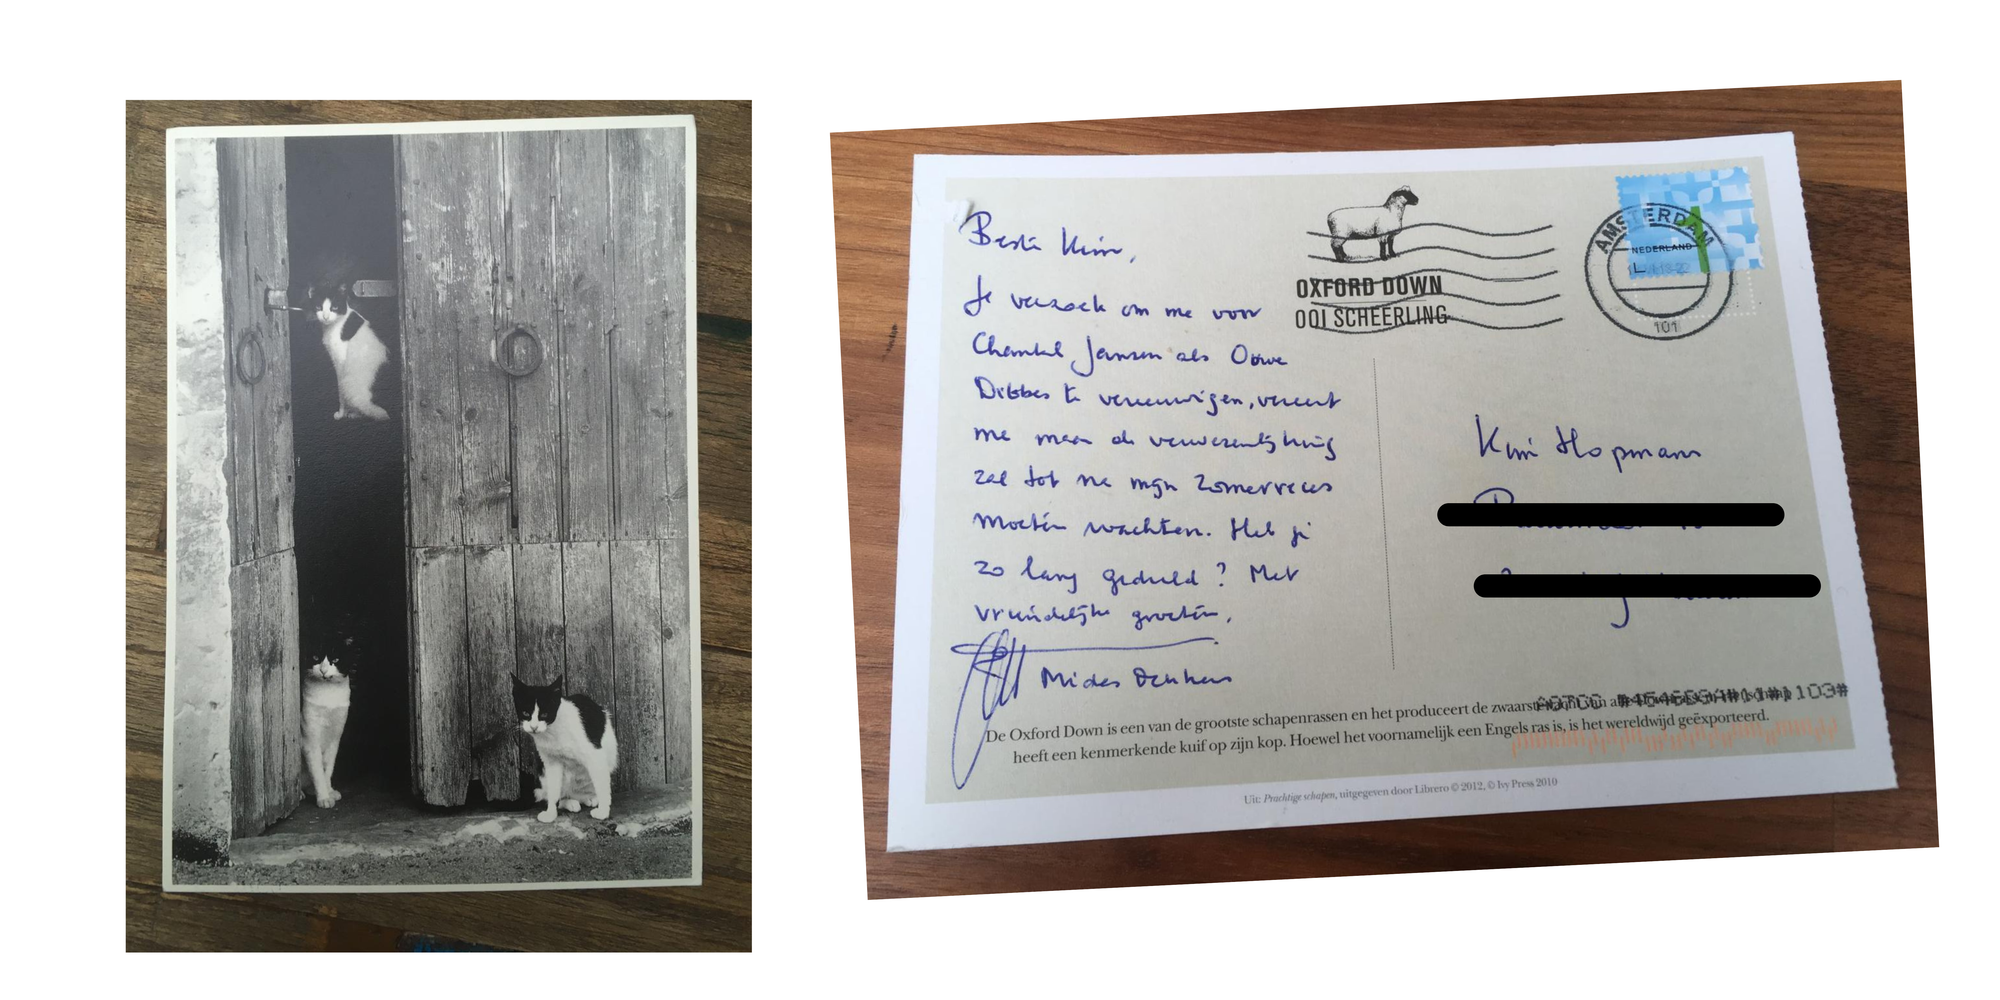 Beste Kim,
Je verzoek om me voor
Chantal Jansen als Ouwe
Dibbes te vereeuwigen, vereert
me maar de verwezenlijking
zal tot na mijn zomerreces
moeten wachten. Heb je
zo lang geduld? Met
vriendelijke groeten,
OXFORD DOWN
OOI SCHEERLING
AMSTERDAM
NEDERLAND
1
101
Kim Hopmann
De Oxford Down is een van de grootste schapenrassen en het produceert de zwaarste
heeft een kenmerkende kuif op zijn kop. Hoewel het voornamelijk een Engels ras is, is het wereldwijd geëxporteerd.
Uit: Prachtige schapen, uitgegeven door Librero © 2012, © Ivy Press 2010